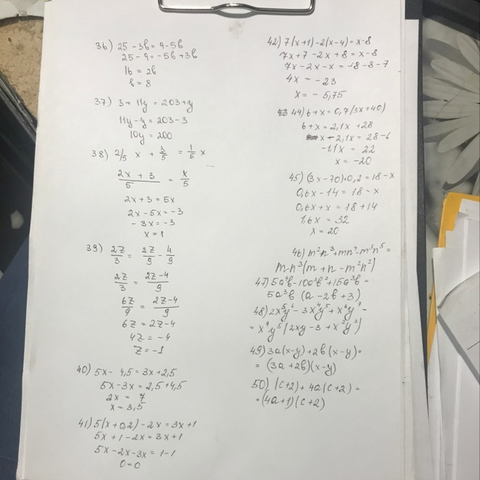 36) 25 - 3b = 9 - 5b
25 - 9 = -5b + 3b
16 = 2b
b = 8
37) 3 + 11y = 203 + y
11y - y = 203 - 3
10y = 200
38) 2/5 x + 3/5 = 1/5 x
(2x + 3)/5 = x/5
2x + 3 = 5x
2x - 5x = -3
-3x = -3
x = 1
39) 2z/3 = 2z/9 - 4/9
2z/3 = (2z - 4)/9
6z/9 = (2z - 4)/9
6z = 2z - 4
4z = -4
z = -1
40) 5x - 4,5 = 3x + 2,5
5x - 3x = 2,5 + 4,5
2x = 7
x = 3,5
41) 5(x + 0,2) - 2x = 3x + 1
5x + 1 - 2x = 3x + 1
5x - 2x - 3x = 1 - 1
0 = 0
42) 7(x + 1) - 2(x - 4) = x - 8
7x + 7 - 2x + 8 = x - 8
7x - 2x - x = -8 - 8 - 7
4x = -23
x = -5,75
44) 6 + x = 0,7(3x + 40)
6 + x = 2,1x + 28
x - 2,1x = 28 - 6
-1,1x = 22
x = -20
45) (3x - 70) · 0,2 = 18 - x
0,6x - 14 = 18 - x
0,6x + x = 18 + 14
1,6x = 32
x = 20
46) m²n³ + mn⁴ - m³n⁵ =
mn³(m + n - m²n²)
47) 5a⁴b - 10a³b² + 15a³b =
5a³b (a - 2b + 3)
48) 2x⁵y⁶ - 3x⁴y⁵ + x⁶y⁷ =
= x⁴y⁵(2xy - 3 + x²y²)
49) 3a(x - y) + 2b(x - y) =
= (3a + 2b)(x - y)
50) (c + 2) + 4a(c + 2) =
= (4a + 1)(c + 2)